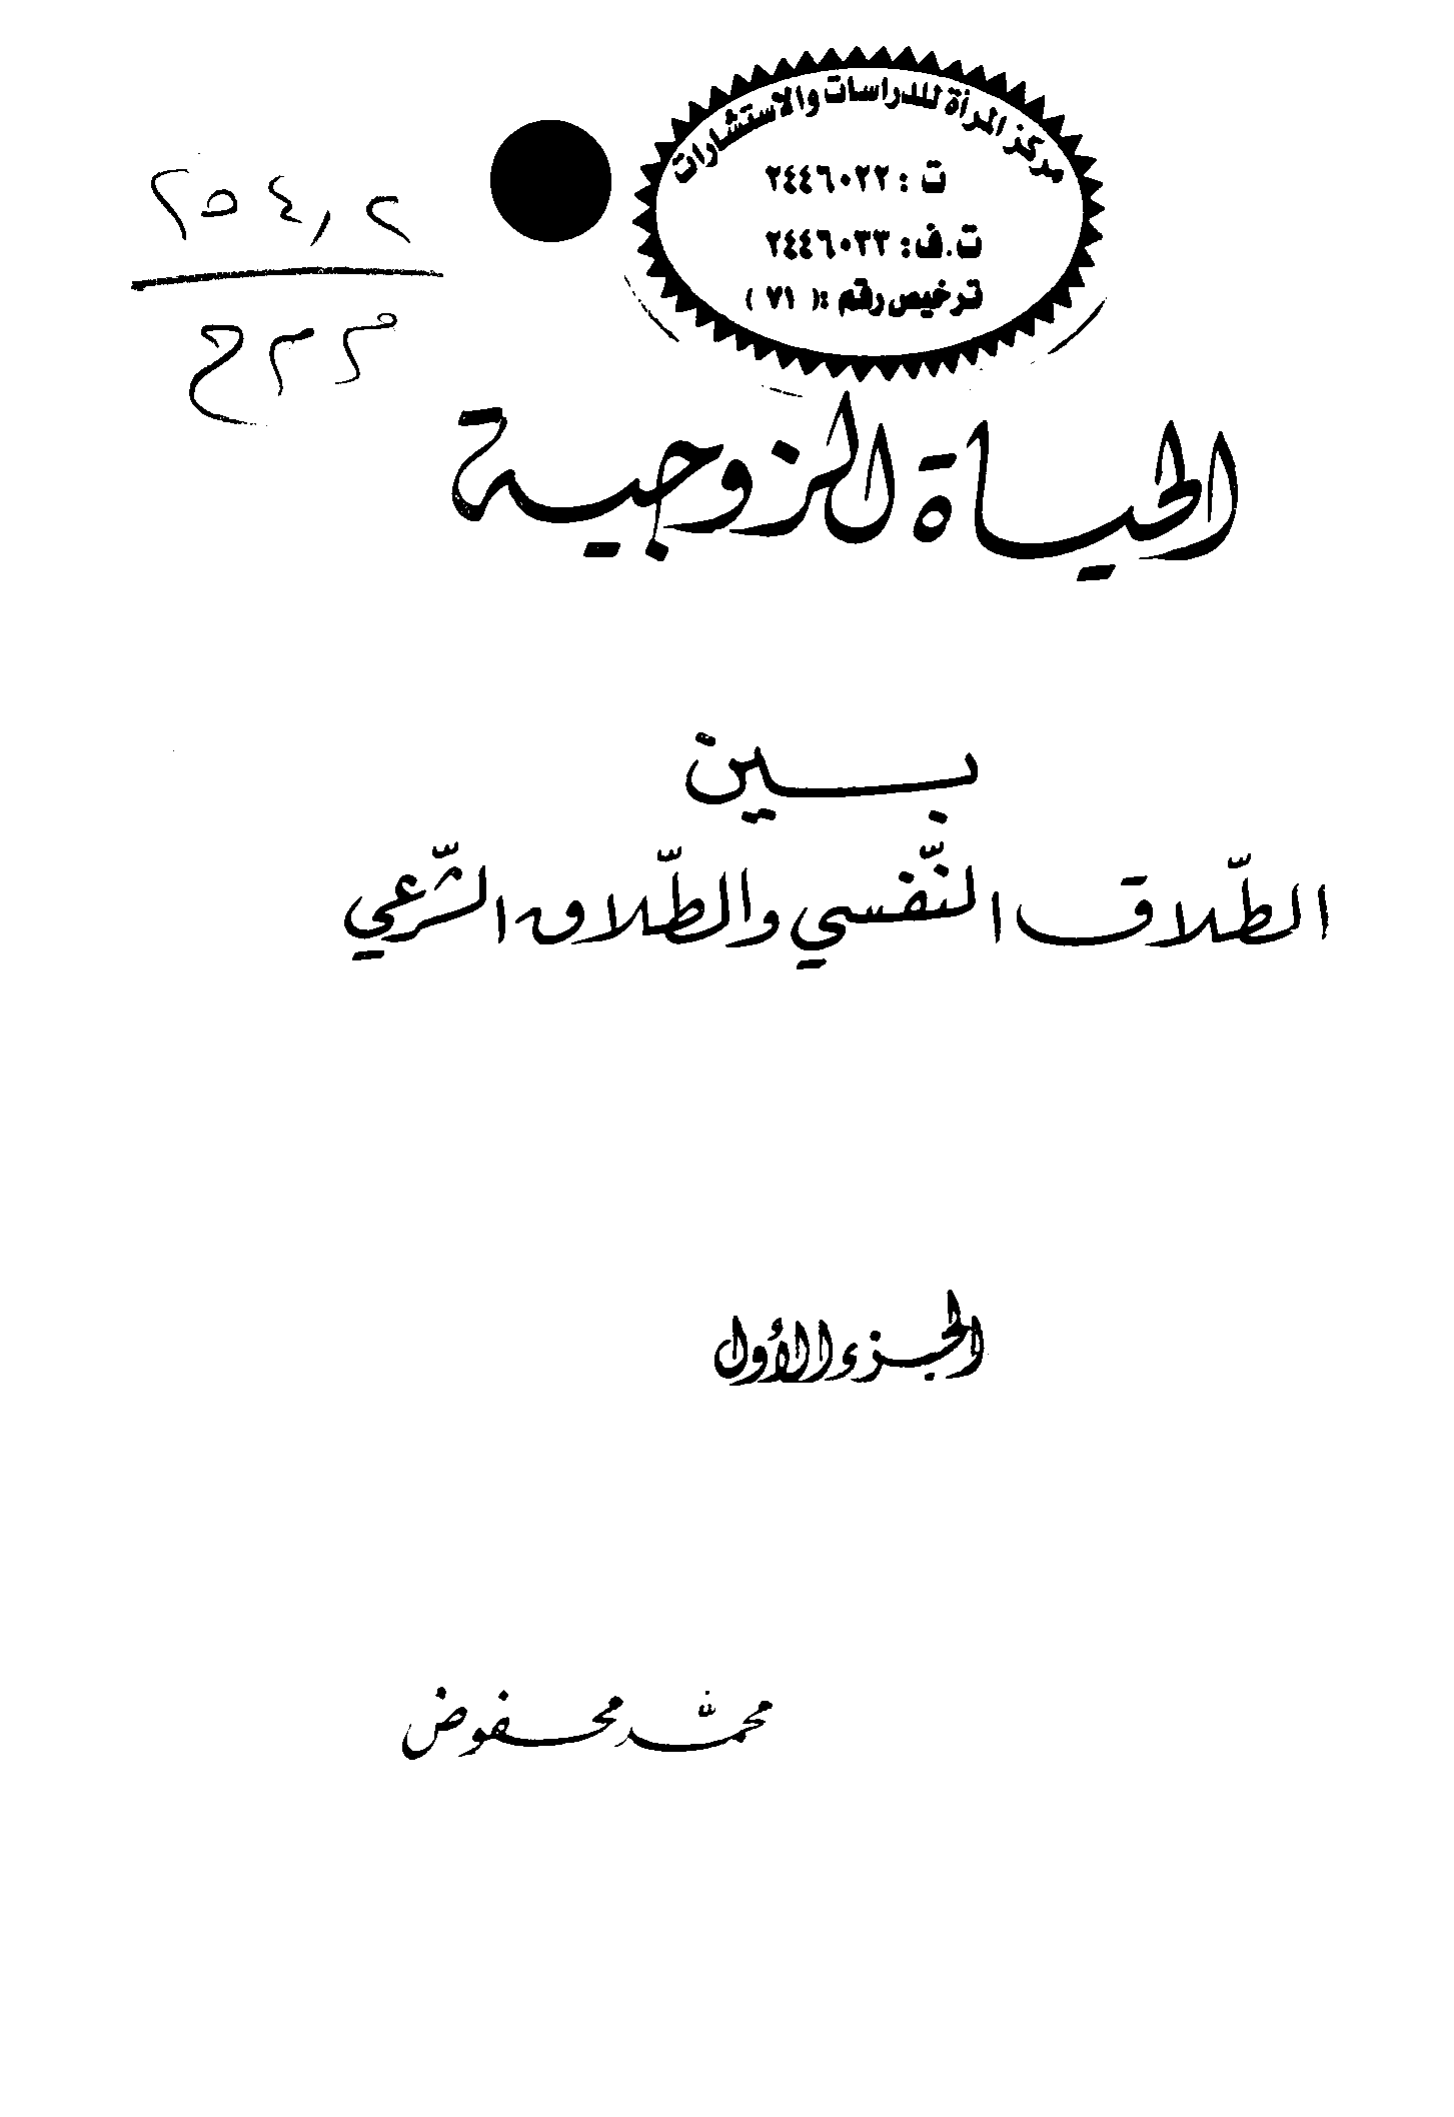 مركز المرأة للدراسات والاستشارات
ت : ٢٤٤٦٠٢٢
ت.ف: ٢٤٤٦٠٣٣
ترخيص رقم :( ٧١ )
٢٥٤,٢
الحياة الزوجية
بين
الطّلاق النّفسي والطّلاق الشّرعي
الجزء الأول
محمّد محفوض